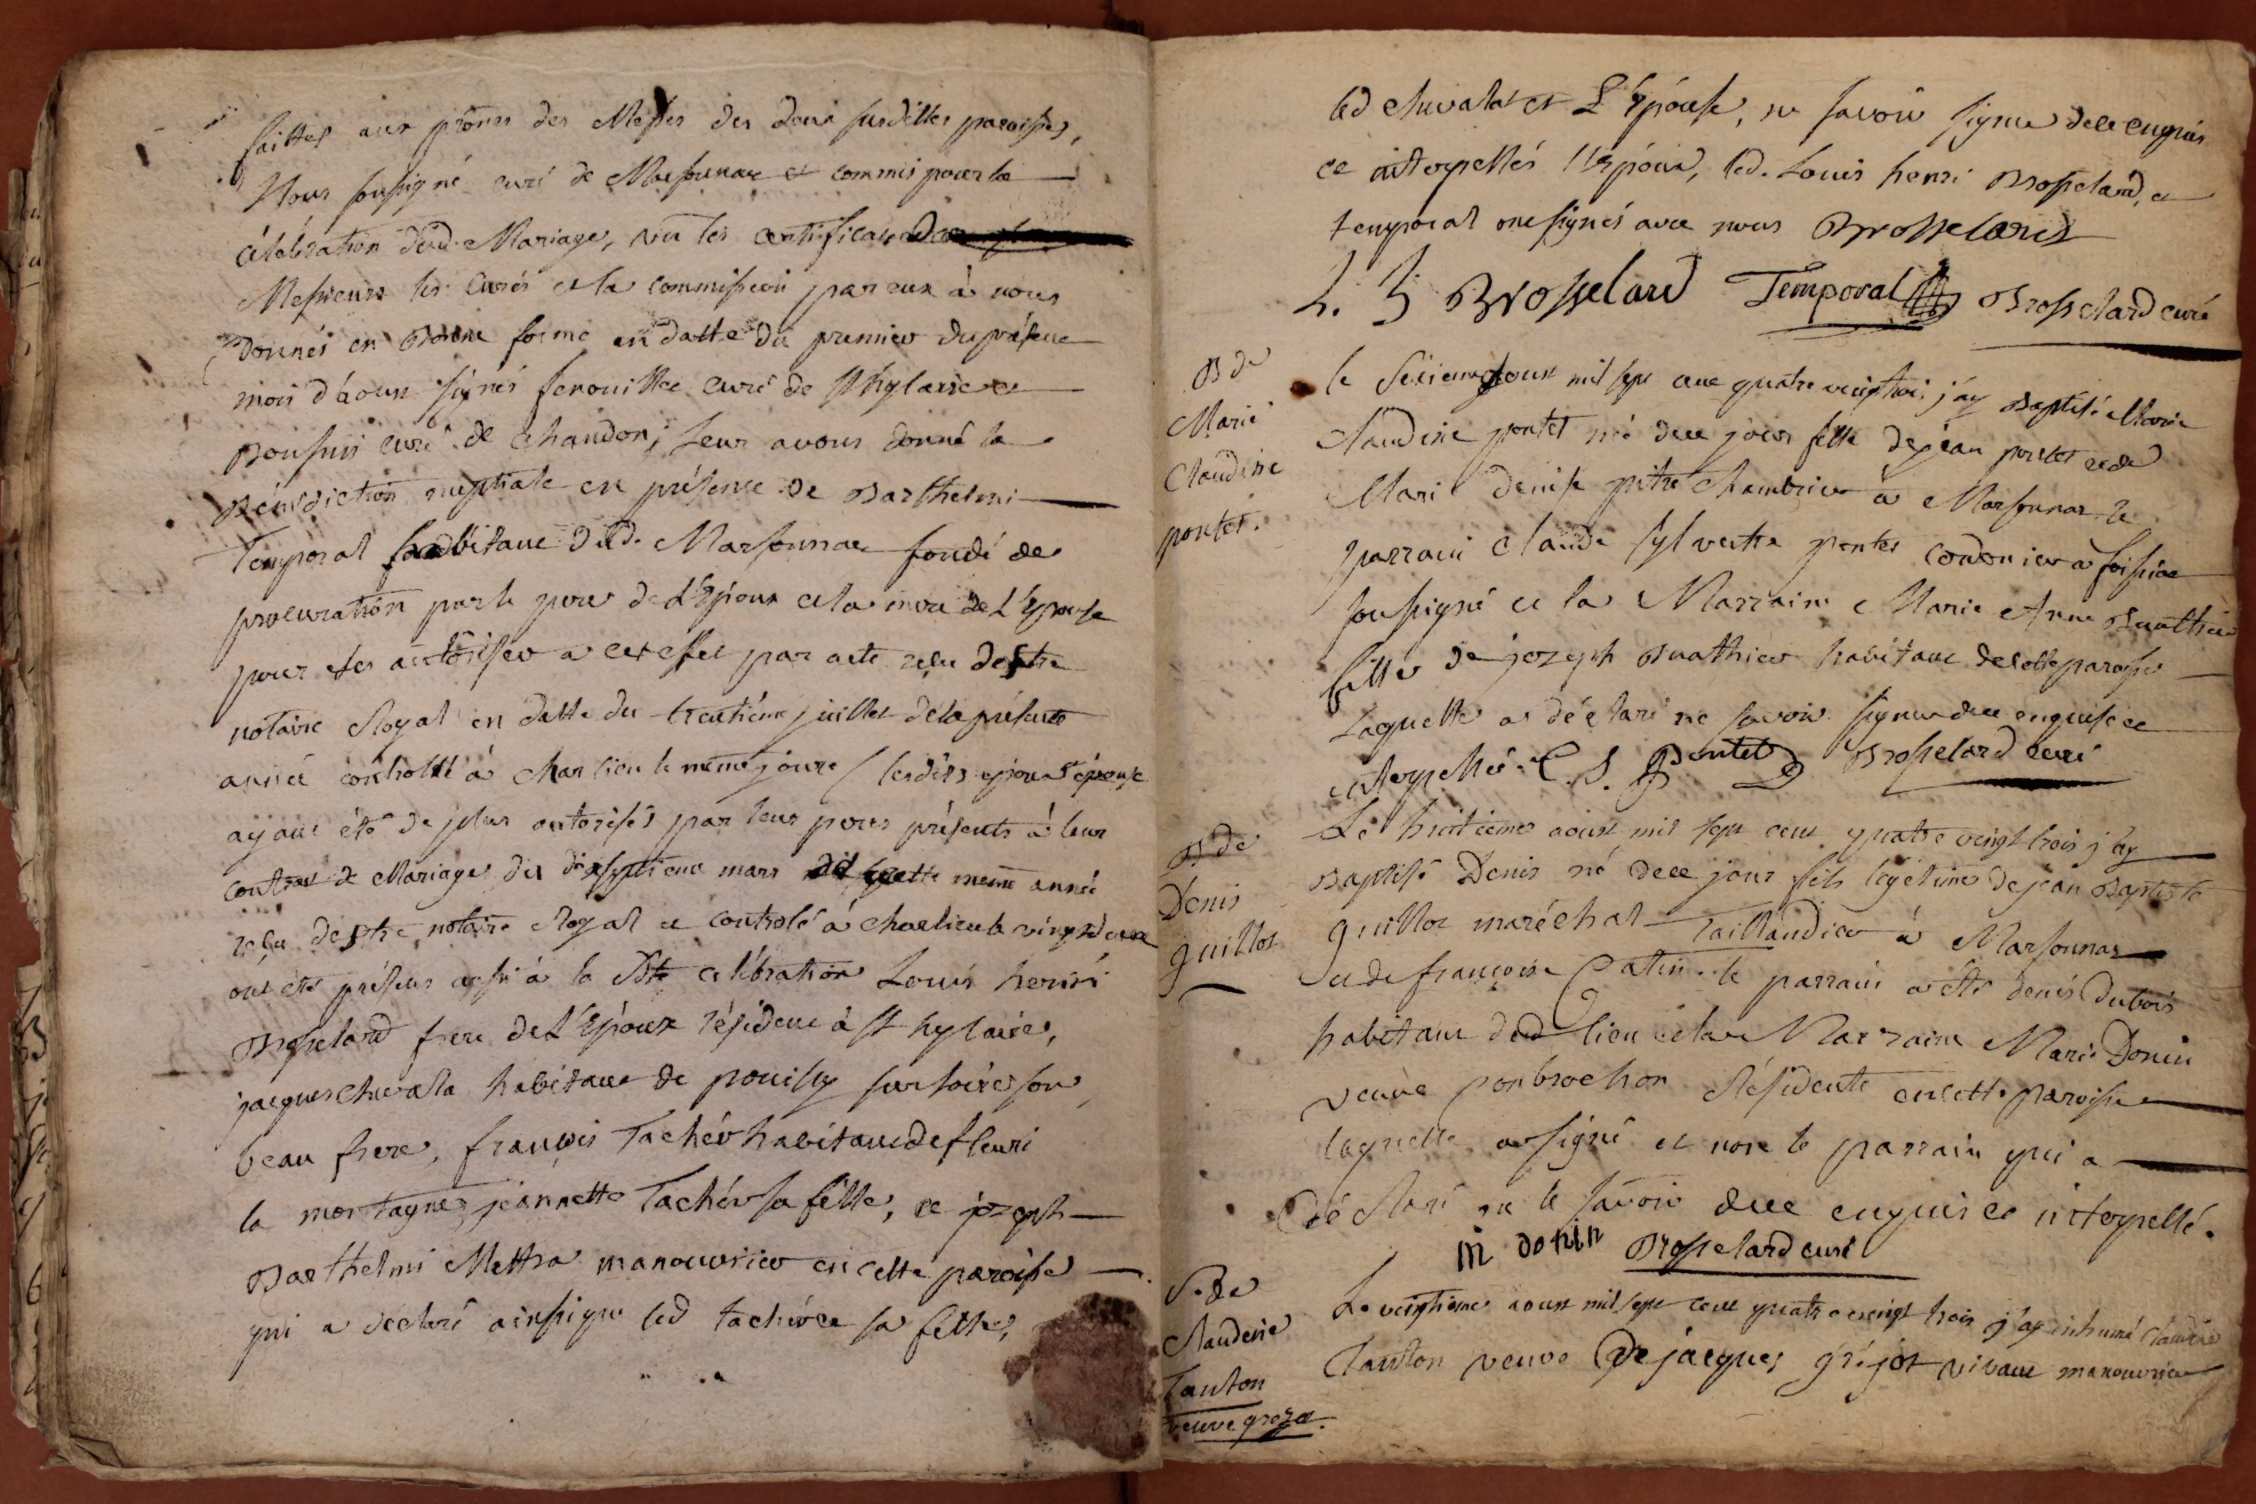 faittes aux prônes des Messes des deux susdittes paroisses,
Nous soussigné curé de Marsonnac et commis pour la
célébration dud. Mariage, vu les certificats de
Messieurs les curés et la commission par eux à nous
donnés en bonne forme en datte du premier du présent
mois d'aout signés fenouillee curé de St hylaire et
curé de chandon, leur avons donné la
Bénédiction nuptiale en présence de Barthelmi
Temporal habitant dud. Marsonnac fondé de
procuration par le pere de L'Epoux et la mere de L'Epouse
pour les autoriser a cet effet par acte reçu destre
notaire Royal en datte du trentième juillet de la présente
année controllé à charlieu le même jour / lesdits epoux et épouse
ayant été de plus autorisés par leur peres présents à leur
contrat de Mariage du dixseptieme mars cette meme année
reçu destre notaire Royal et controlé à charlieu le vingt deux
ont été présens aussi à la dte célébration Louis henri
Brosselard frere de L'Epoux résident à St hylaire,
jacques chuvala habitant de pouilly sur loire son
beau frere, françois Tachér habitant de fleuri
la montagne, jeannette Tachér sa fille, et joseph
Barthelmi Mettra manouvrier en cette paroisse
qui a déclaré ainsi que led tachér et sa fille,
led chuvalat et L'Epouse, ne savoir signer de ce enquis
et interpellés l'Epoux, led. Louis henri Brosselard, et
temporal ont signés avec nous Brosselard
L. h Brosselard Temporal Brosselard curé
B de
Marie
Claudine
pontet.
le sixieme aout mil sept cent quatre vingt trois j'ay Baptisé Marie
Claudine pontet né de ce jour fille de jean pontet et de
Marie denise pitre chambrier à Marsonnac le
parrain claude sylvestre pontet cordonier à
soussigné et la Marraine Marie Anne Buathier
fille de joseph Buathier habitant de cette paroisse
Laquelle a déclaré ne savoir signer de ce enquise et
interpellée. C. S. Pontet Brosselard curé
B de
Denis
guillot
Le huitieme aoust mil sept cent quatre vingt trois j'ay
Baptisé Denis né de ce jour fils légitime de jean Baptiste
guillot maréchal Taillandier à Marsonnas
et de françoise Catin. le parrain a été denis Dubois
habitant dud lieu et la Marraine Marie Donin
veuve ponbrochon Résidente en cette paroisse
laquelle a signé et non le parrain qui a
déclaré ne le savoir de ce enquis et interpellé.
m donin Brosselard curé
S. de
Claudine
Tanton
veuve grozot.
Le vingtieme aout mil sept cent quatre vingt trois j'ay inhumé claudine
Tanton veuve De jacques gréjot vivant manouvrier